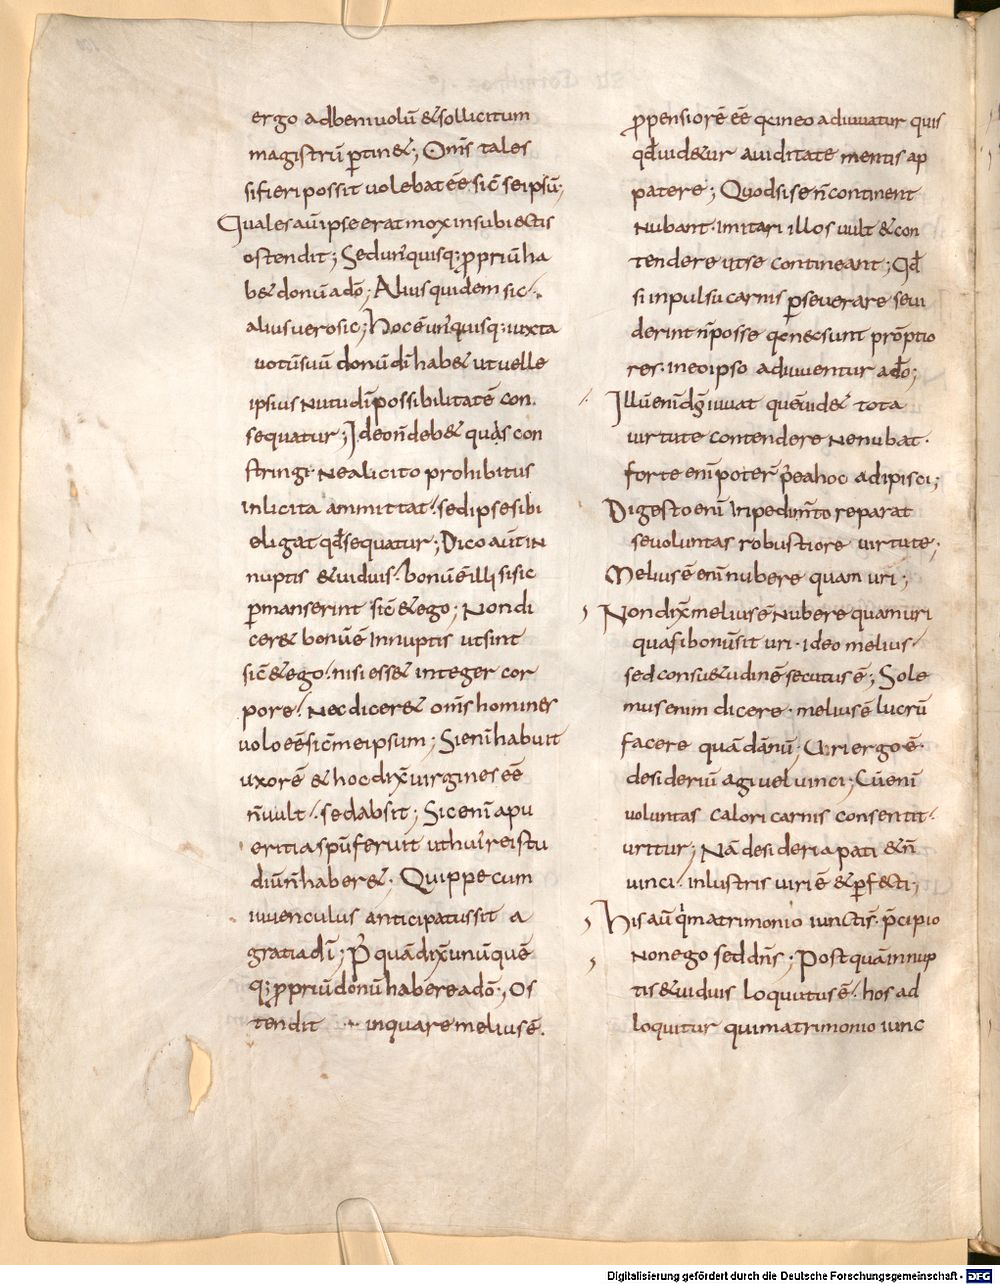 ergo adbenivolū &sollicitum
magistrū ꝑtin&; Om̄s tales
sifieri possit volebat ēē sic̄ seipsū;
Quales aū ipse erat mox insubiectis
ostendit; Sed un'quisq; ꝓpriū ha
b& donū a do; Alius quidem sic.
alius vero sic; Hoc ē un'quisq; iuxta
votū suū donū dī hab& ut velle
ipsius nutu dī possibilitatē con
sequatur; Ideo n̄ deb& quas con
stringi. Ne alicito prohibitus
inlicita ammittat. sed ipse sibi
eligat qđ sequatur; Dico aūt in
nuptis & viduis. bonū ē illi si sic
ꝑmanserint sic̄ & ego; Non di
cer& bonū ē innuptis ut sint
sic̄ & ego. nisi ess& integer cor
pore. Nec dicer& om̄s homines
volo ēē sic̄ meipsum; Si enī habuit
uxorē & hoc dix̄ virgines ēē
n̄ vult. sed absit; Sic enī apu
eritia spū feruit ut huī rei stu
diū n̄ haber&; Quippe cum
iuvenculus anticipatus sit a
gratia dī; P' quā dix̄ unū quē
q; ꝓpriū donū habere a dō; Os
tendit inquare melius ē.
ꝓpensiorē ēē q̇ in eo adiuvatur quis
qđ vid&ur aviditate mentis ap
patere; Quod si se n̄ continent
nubant. imitari illos vult & con
tendere ut se contineant; Qđ
si inpulsu carnis ꝑseverare se vi
derint n̄ posse q̇ nec sunt prōptio
res. in eo ipso adiuventur a do;
Illū enī dȳ iuvat quē vid& tota
virtute contendere ne nubat.
forte enī poter' p̄ea hoc adipisci;
Digesto enī inpedim̄to reparat
se voluntas robustiore virtute;
Melius ē enī nubere quam uri;
Non dix̄ melius ē nubere quam uri
quasi bonū sit uri. ideo melius.
sed consu&udinē secutus ē; Sole
mus enim dicere. melius ē lucrū
facere quā dānū; Uri ergo ē.
desideriū agi vel vinci; Cū enī
voluntas calori carnis consentit.
uritur; Nā desideria pati & n̄
vinci. inlustris viri ē & ꝑfecti;
His aū q̇ matrimonio iunctis. p̄cipio
non ego sed dn̄s; Postquā innup
tis & viduis loquutus ē. hos ad
loquitur qui matrimonio iunc
Digitalisierung gefördert durch die Deutsche Forschungsgemeinschaft - DFG